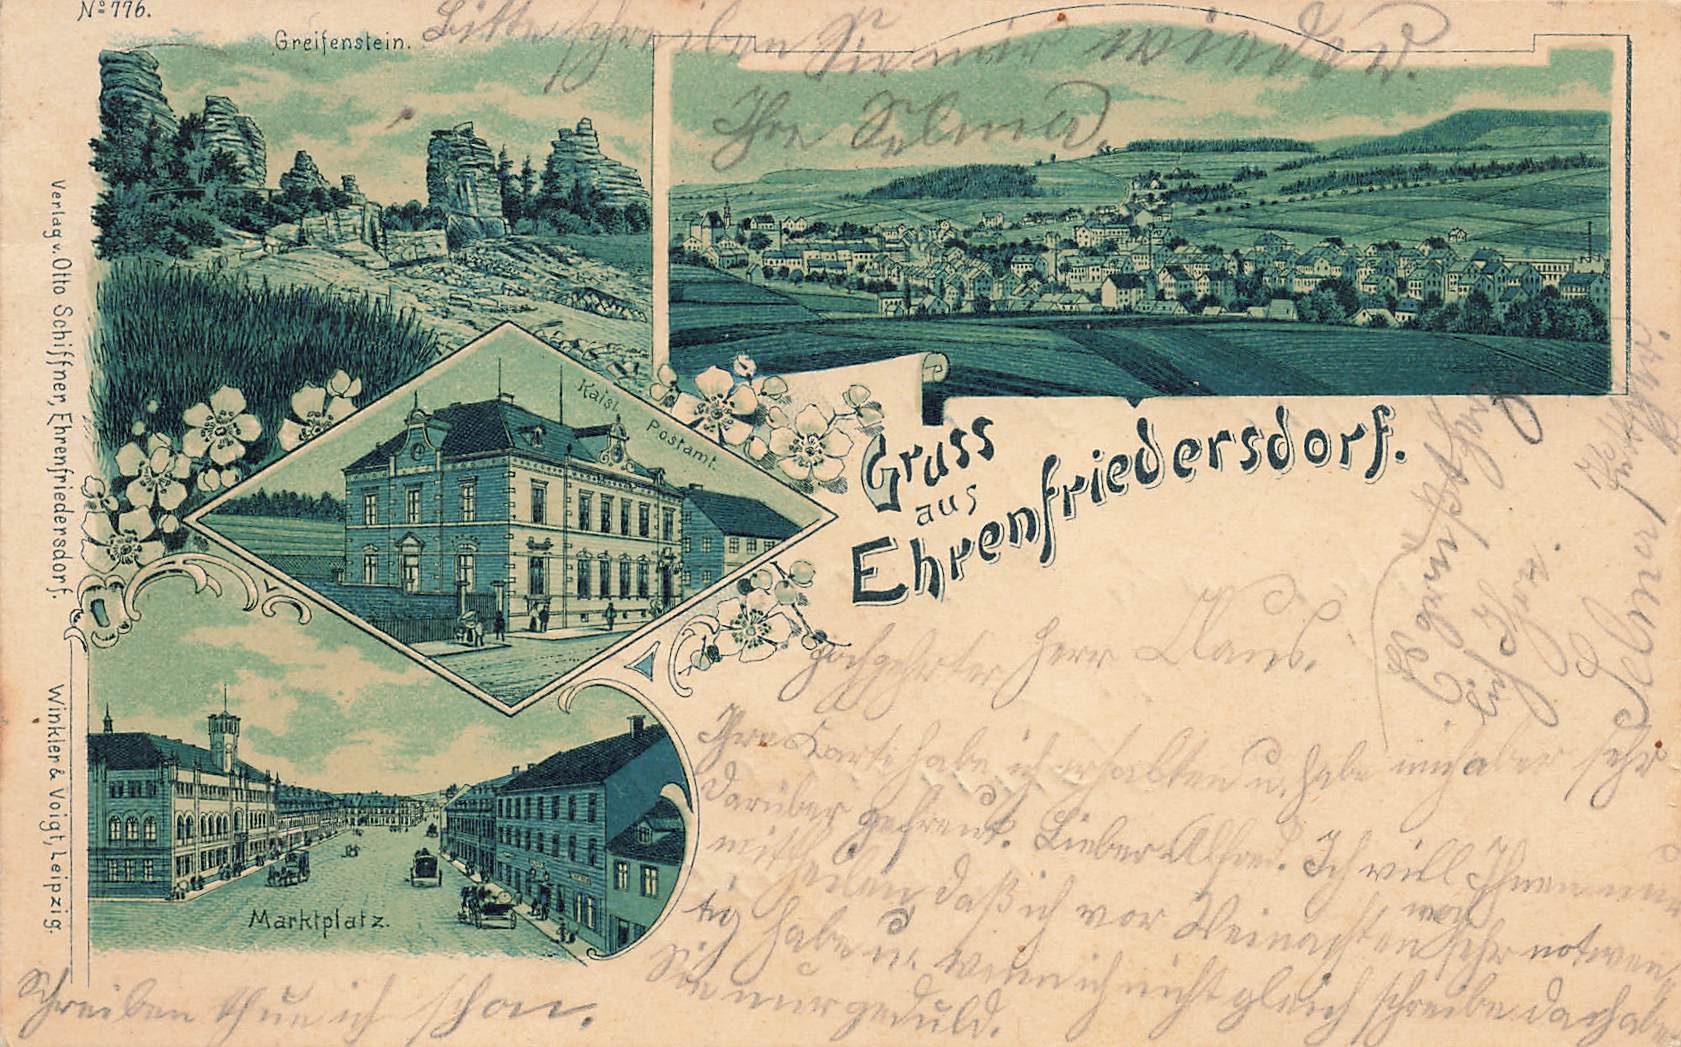 No 776.
Greifenstein.
Bitte schreiben Sie mir wieder.
Ihre Selma.
Kaisl. Postamt.
Gruss
aus
Ehrenfriedersdorf.
Verlag v. Otto Schiffner, Ehrenfriedersdorf.
Winkler & Voigt, Leipzig.
Marktplatz.
Hochgehrter Herr Claus.
Ihre Karte habe ich erhalten u. habe mich aber sehr
darüber gefreut. Lieber Alfred. Ich will Ihnen nur
mittheilen, daß ich vor Weinachten noch sehr notwen
tig habe u. wenn ich nicht gleich schreibe da haben
Sie nur geduld.
Schreiben thue ich schon.
Es grüßt
Selma